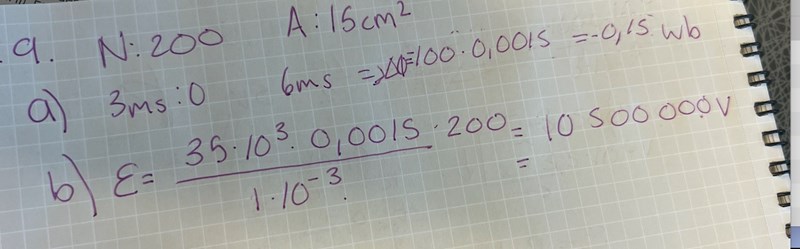 9. N:200 A:15cm²
a) 3ms:0 6ms =ΔΦ=100·0,0015 =-0,15 Wb
b) ε= 35·10³·0,0015·200 / 1·10⁻³ = 10 500 000V